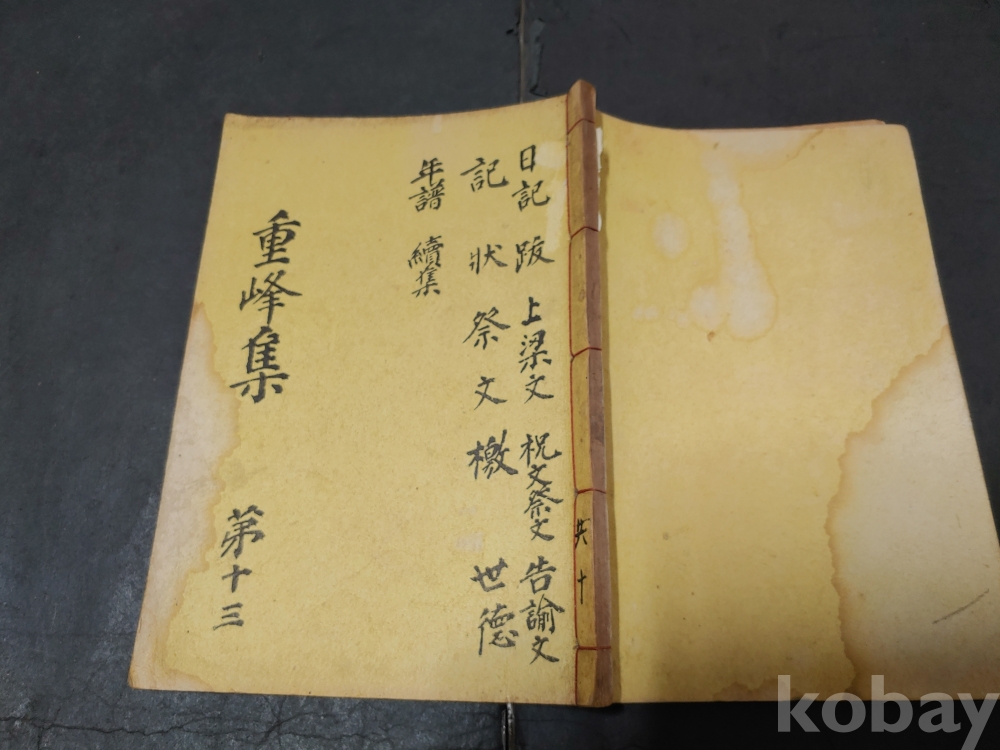 日記 跋 上梁文 祝文祭文 告諭文
記 狀 祭文 檄 世德
年譜 續集
重峰集 第十三
共十
kobay